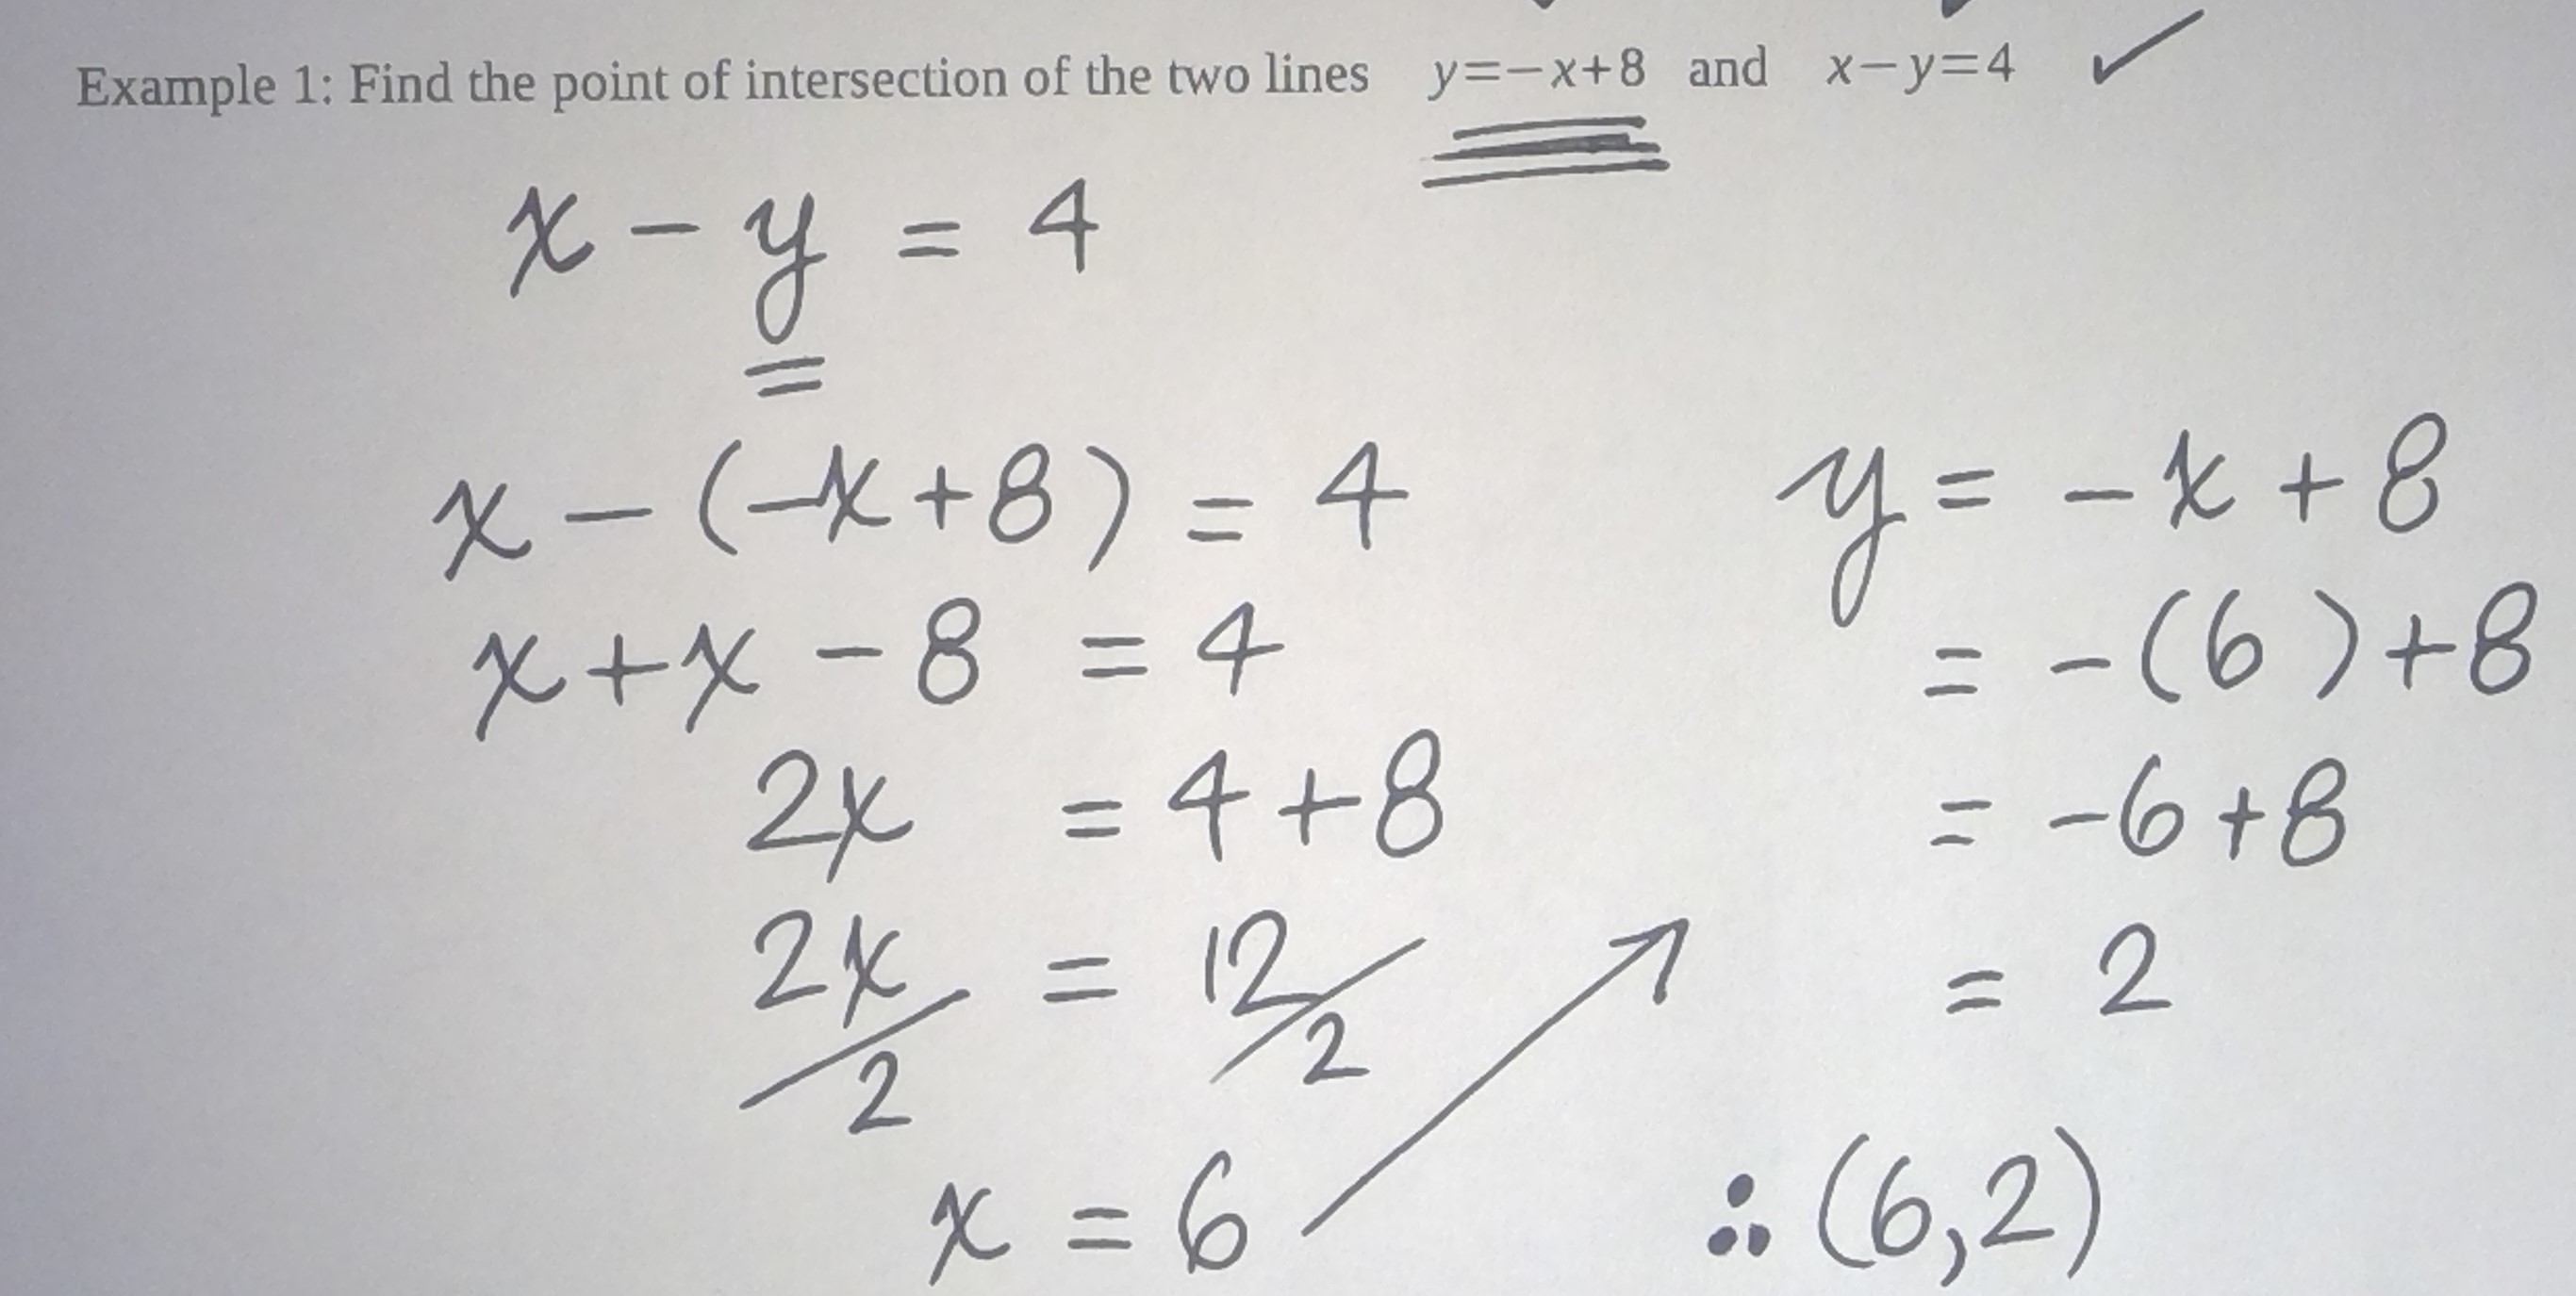 Example 1: Find the point of intersection of the two lines y=−x+8 and x−y=4 ✓
x − y = 4
x − (−x+8) = 4
x + x − 8 = 4
2x = 4 + 8
2x/2 = 12/2
x = 6
y = −x + 8
= −(6) + 8
= −6 + 8
= 2
∴ (6,2)